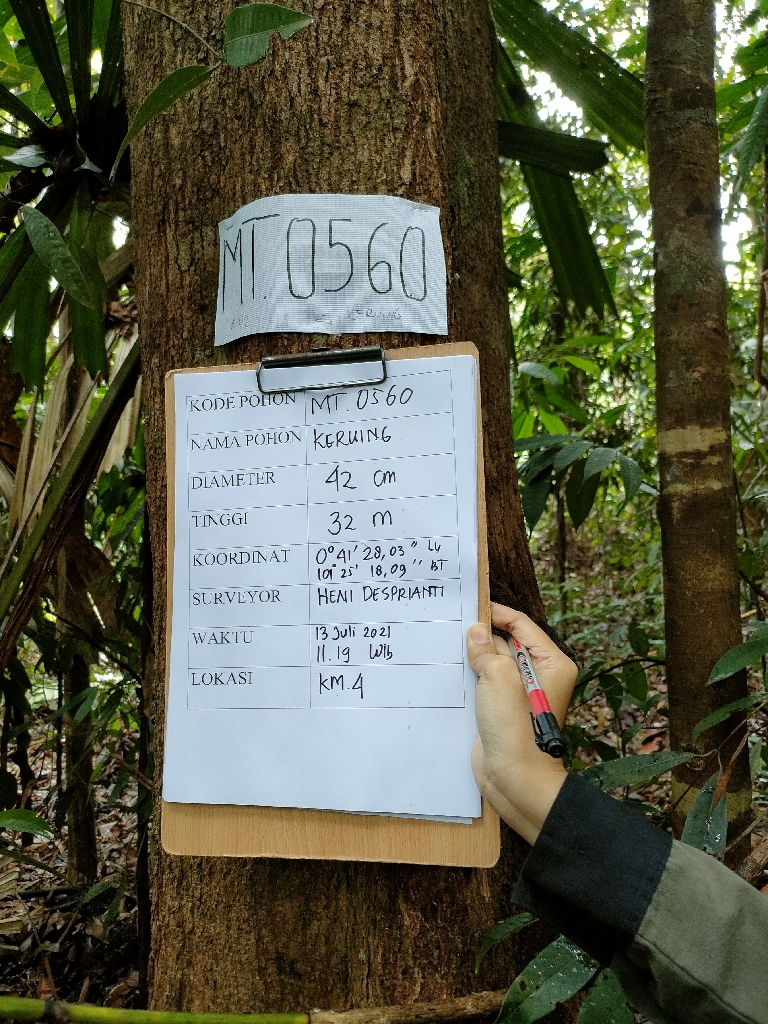 MT. 0560
KERUING
KODE POHON MT. 0560
NAMA POHON KERUING
DIAMETER 42 cm
TINGGI 32 m
KOORDINAT 0°41' 28,03" LU
101° 25' 18,09" BT
SURVEYOR HENI DESPRIANTI
WAKTU 13 Juli 2021
11.19 WIb
LOKASI KM.4